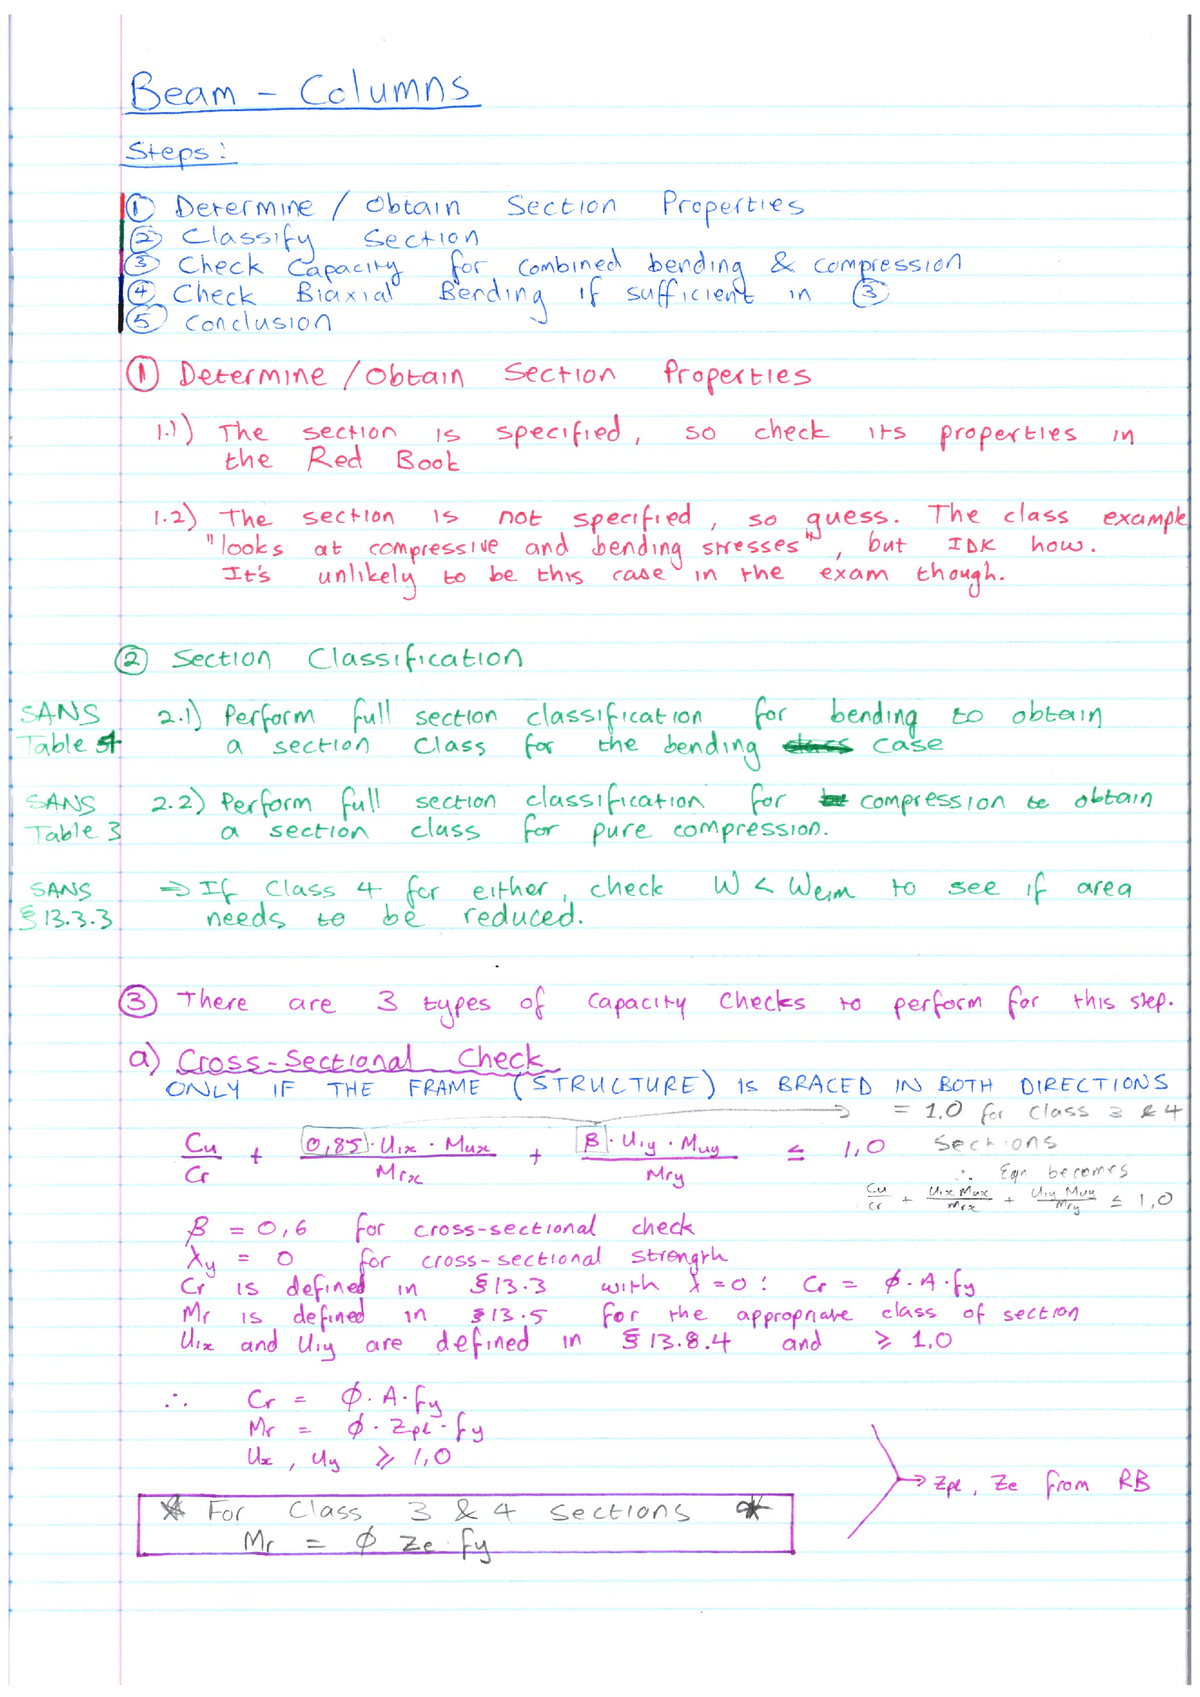 Beam - Columns
Steps:
① Determine / Obtain Section Properties
② Classify Section
③ Check Capacity for combined bending & compression
④ Check Biaxial Bending if sufficient in ③
⑤ Conclusion
① Determine / Obtain Section Properties
1.1) The section is specified, so check its properties in
the Red Book
1.2) The section is not specified, so guess. The class example
"looks at compressive and bending stresses", but IDK how.
It's unlikely to be this case in the exam though.
② Section Classification
SANS 2.1) Perform full section classification for bending to obtain
Table 4 a section class for the bending case
SANS 2.2) Perform full section classification for compression to obtain
Table 3 a section class for pure compression.
SANS => If Class 4 for either, check W < Wlim to see if area
§ 13.3.3 needs to be reduced.
③ There are 3 types of capacity checks to perform for this step.
a) Cross-Sectional Check
ONLY IF THE FRAME (STRUCTURE) IS BRACED IN BOTH DIRECTIONS
→ = 1.0 for class 3 & 4
Cu/Cr + 0,85 · U1x · Mux / Mrx + β · U1y · Muy / Mry ≤ 1,0 Sections
∴ Eqn becomes
Cu/Cr + U1x Mux / Mrx + U1y Muy / Mry ≤ 1,0
β = 0,6 for cross-sectional check
λy = 0 for cross-sectional strength
Cr is defined in § 13.3 with λ = 0 : Cr = ϕ · A · fy
Mr is defined in § 13.5 for the appropriate class of section
U1x and U1y are defined in § 13.8.4 and ≥ 1,0
∴ Cr = ϕ · A · fy
Mr = ϕ · Zpl · fy
Ux , Uy ≥ 1,0
→ Zpl , Ze from RB
* For Class 3 & 4 Sections *
Mr = ϕ Ze · fy